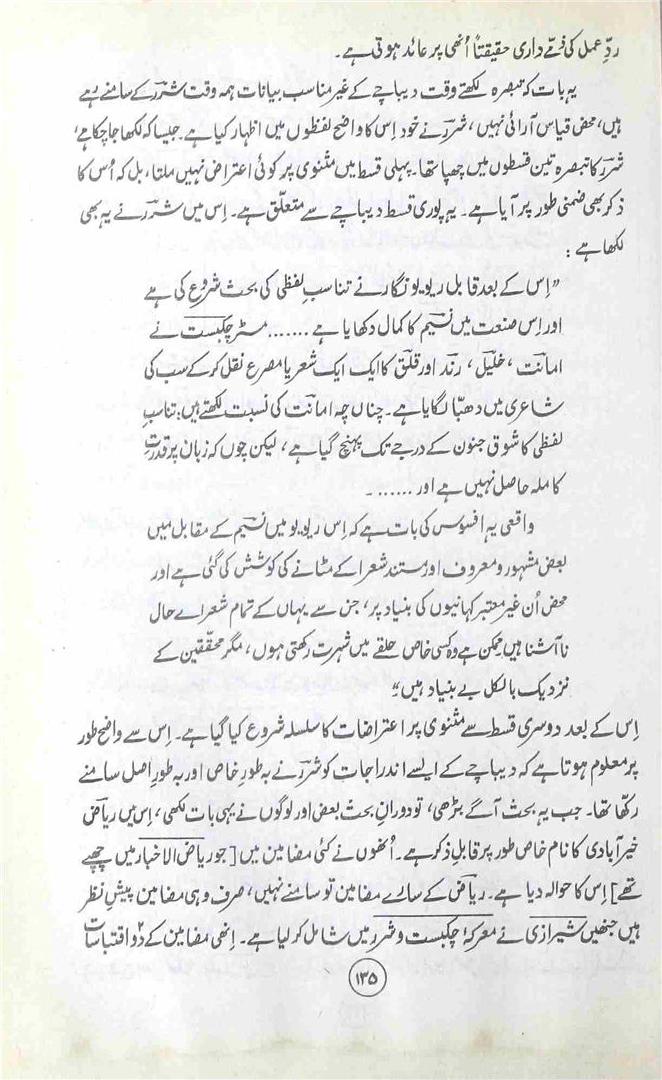 ردِّ عمل کی ذمّے داری حقیقتاً اُنھی پر عائد ہوتی ہے۔
یہ بات کہ تبصرہ لکھتے وقت دیباچے کے غیر مناسب بیانات ہمہ وقت شررؔ کے سامنے رہے
ہیں، محض قیاس آرائی نہیں، شررؔ نے خود اِس کا واضح لفظوں میں اظہار کیا ہے۔ جیسا کہ لکھا جا چکا ہے،
شررؔ کا تبصرہ تین قسطوں میں چھپا تھا۔ پہلی قسط میں مثنوی پر کوئی اعتراض نہیں ملتا، بل کہ اُس کا
ذکر بھی ضمنی طور پر آیا ہے۔ یہ پوری قسط دیباچے سے متعلّق ہے۔ اِس میں شررؔ نے یہ بھی
لکھا ہے :
”اِس کے بعد قابل ریویو نگار نے تناسبِ لفظی کی بحث شروع کی ہے
اور اِس صنعت میں نسیمؔ کا کمال دکھایا ہے ....... مسٹر چکبست نے
امانتؔ، خلیلؔ، رندؔ اور قلقؔ کا ایک ایک شعر یا مصرع نقل کر کے سب کی
شاعری میں دھبّا لگایا ہے۔ چناں چہ امانتؔ کی نسبت لکھتے ہیں: تناسبِ
لفظی کا شوق جنون کے درجے تک پہنچ گیا ہے، لیکن چوں کہ زبان پر قدرتِ
کاملہ حاصل نہیں ہے اور ...... ۔
واقعی یہ افسوس کی بات ہے کہ اِس ریویو میں نسیمؔ کے مقابل میں
بعض مشہور و معروف اور مستند شعرا کے مٹانے کی کوشش کی گئی ہے اور
محض اُن غیر معتبر کہانیوں کی بنیاد پر، جن سے یہاں کے تمام شعراے حال
ناآشنا ہیں۔ ممکن ہے وہ کسی خاص حلقے میں شہرت رکھتی ہوں، مگر محقّقین کے
نزدیک بالکل بے بنیاد ہیں“
اِس کے بعد دوسری قسط سے مثنوی پر اعتراضات کا سلسلہ شروع کیا گیا ہے۔ اِس سے واضح طور
پر معلوم ہوتا ہے کہ دیباچے کے ایسے اندراجات کو شررؔ نے بہ طورِ خاص اور بہ طورِ اصل سامنے
رکھا تھا۔ جب یہ بحث آگے بڑھی، تو دورانِ بحث بعض اور لوگوں نے یہی بات لکھی، اِس میں ریاضؔ
خیرآبادی کا نام خاص طور پر قابلِ ذکر ہے۔ اُنھوں نے کئی مضامین میں [جو ریاض الاخبار میں چھپے
تھے] اِس کا حوالہ دیا ہے۔ ریاضؔ کے سارے مضامین تو سامنے نہیں، صرف وہی مضامین پیشِ نظر
ہیں جنھیں شیرازی نے معرکۂ چکبست و شرر میں شامل کر لیا ہے۔ اِنھی مضامین کے دو ۲ اقتباسات
۱۳۵